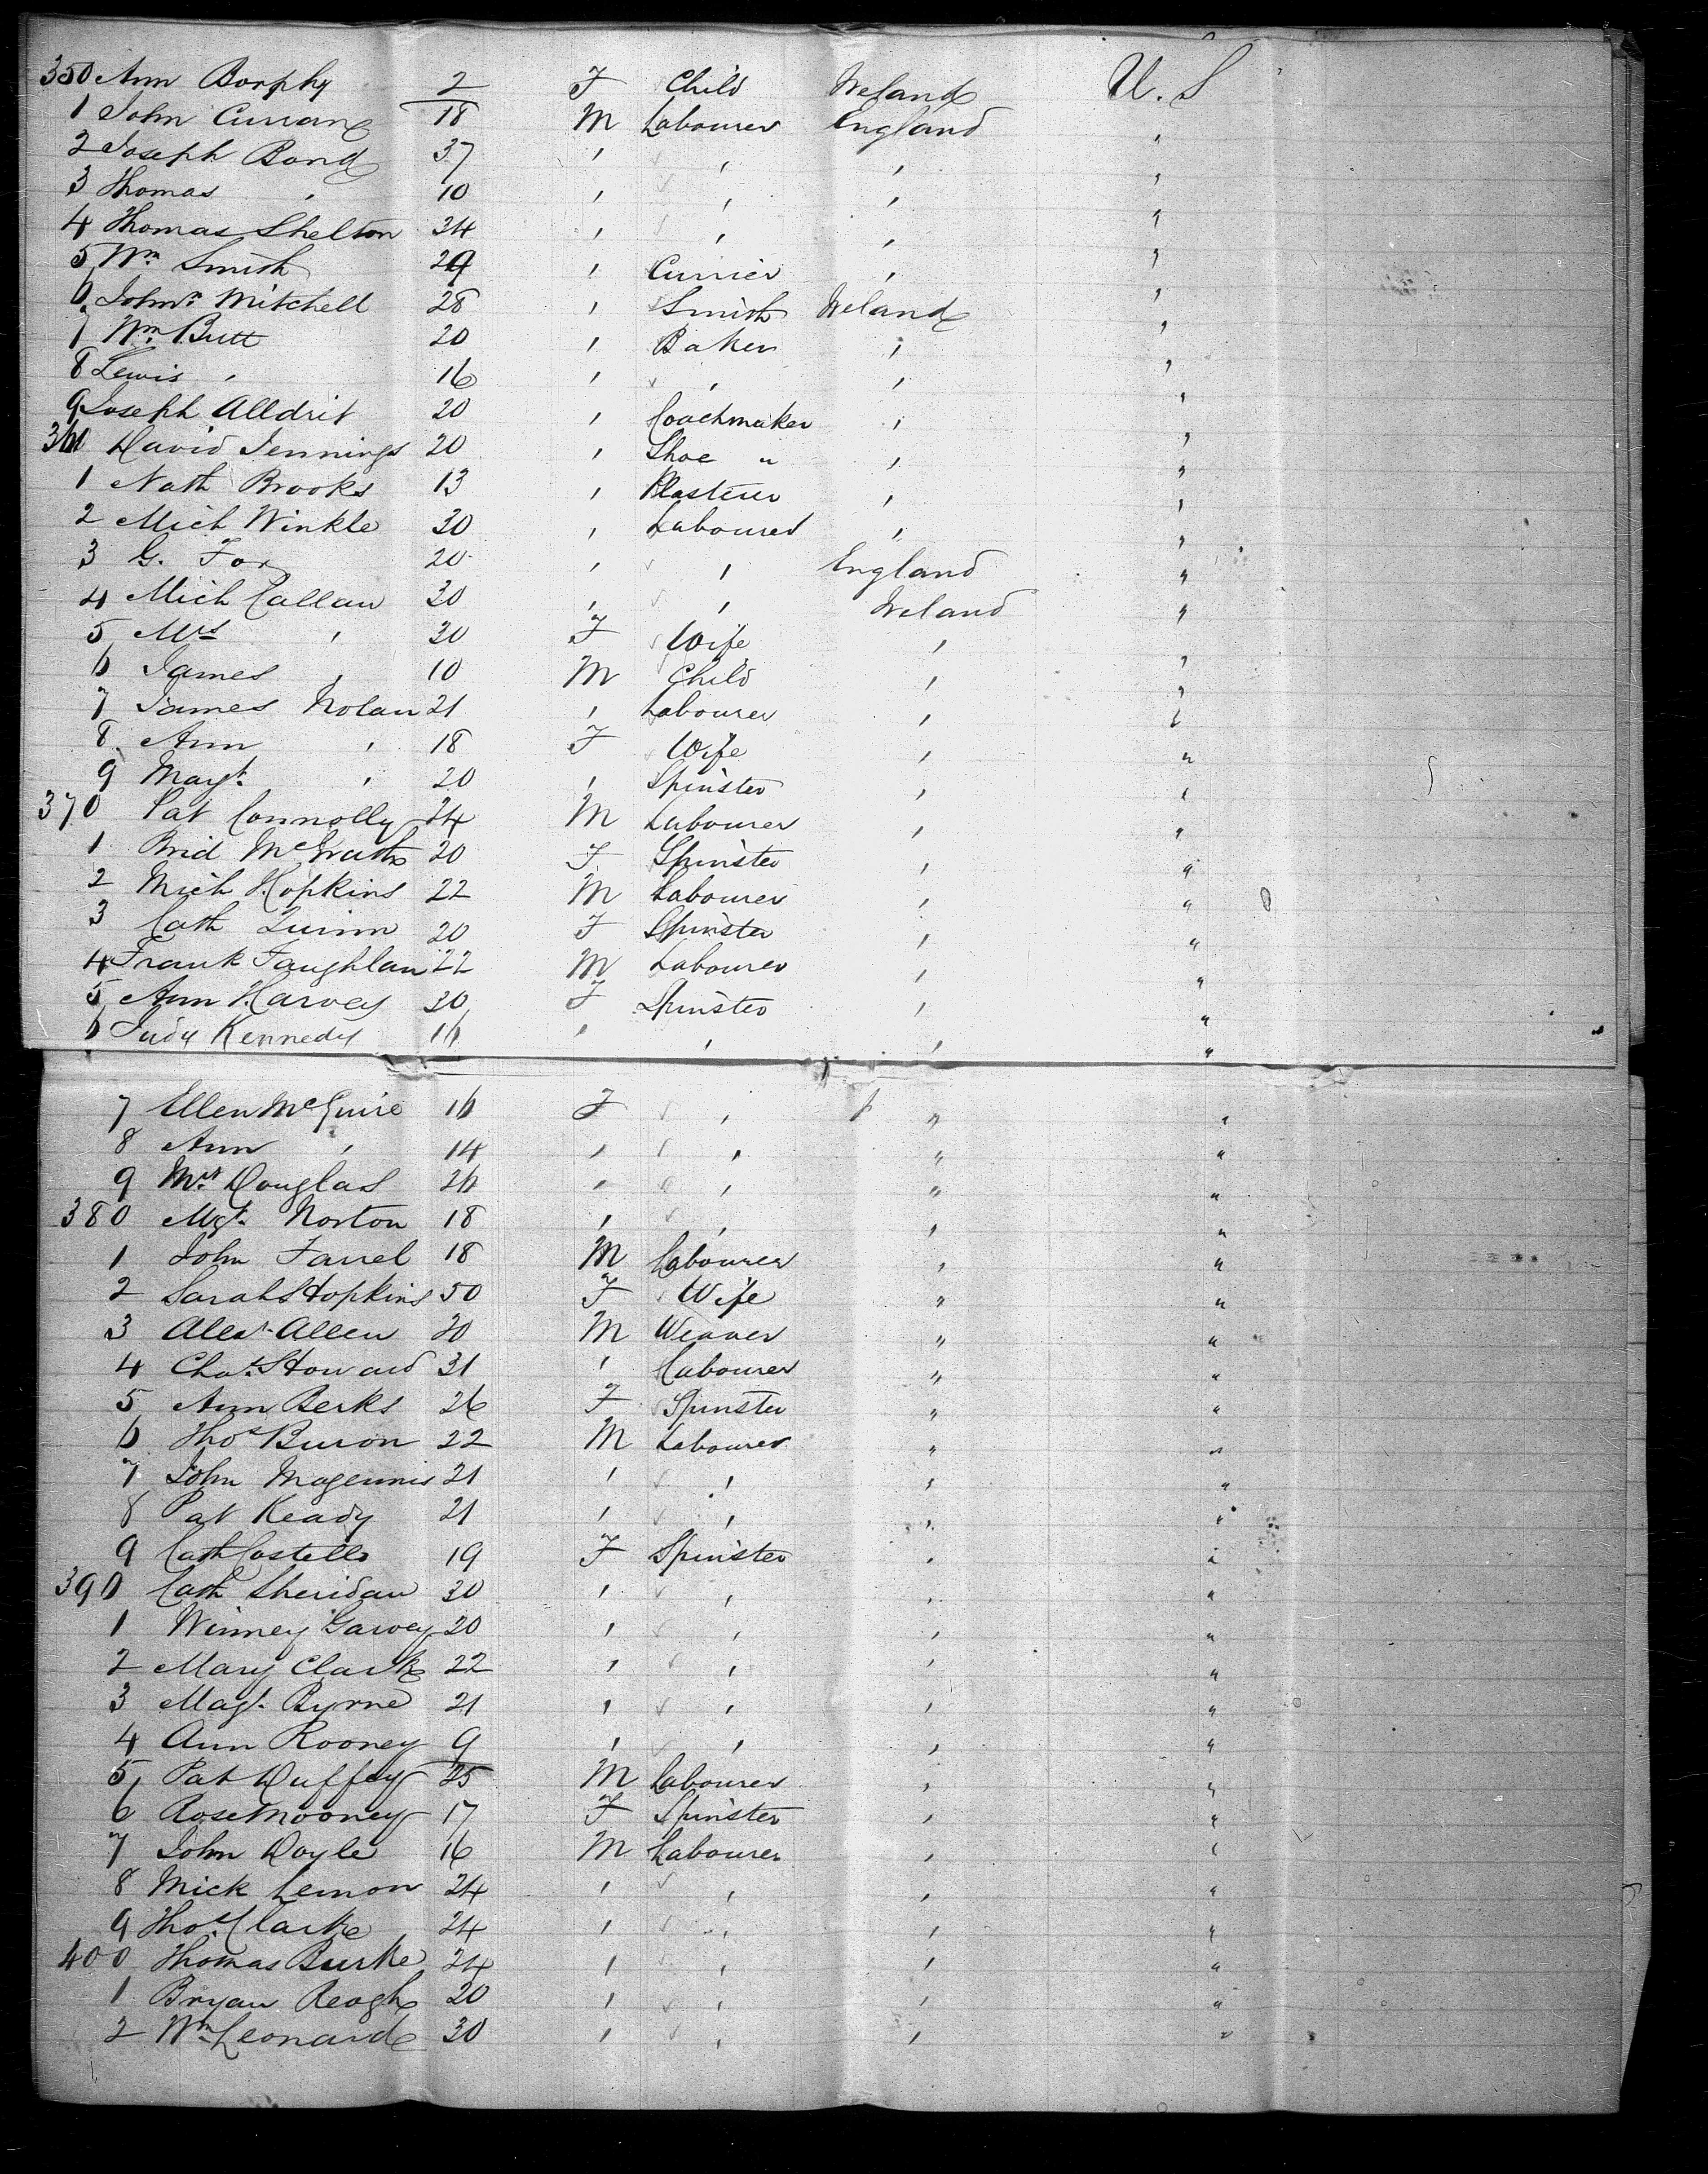 350 Ann Borphy 2 F Child Ireland U.S
1 John Curran 18 M Labourer England "
2 Joseph Bond 37 " " " "
3 Thomas " 10 " " " "
4 Thomas Shelton 24 " " " "
5 Wm Smith 29 " Currier " "
6 Johnn Mitchell 28 " Smith Ireland "
7 Wm Butt 20 " Baker " "
8 Lewis " 16 " " " "
9 Joseph Alldrit 20 " Coachmaker " "
360 David Jennings 20 " Shoe " " "
1 Nath Brooks 13 " Plasterer " "
2 Mich Winkle 30 " Labourer " "
3 G. Fox 20 " " England "
4 Mich Callan 30 " " Ireland "
5 Mrs " 30 F Wife " "
6 James " 10 M Child " "
7 James Nolan 21 " Labourer " "
8 Ann " 18 F Wife " "
9 Margt " 20 " Spinster " "
370 Pat Connolly 24 M Labourer " "
1 Brid McGrath 20 F Spinster " "
2 Mich Hopkins 22 M Labourer " "
3 Cath Quinn 20 F Spinster " "
4 Frank Faughlan 22 M Labourer " "
5 Ann Harvey 30 F Spinster " "
6 Judy Kennedy 16 " " " "
7 Ellen McGuire 16 F " " "
8 Ann " 14 " " " "
9 Mrs Douglas 26 " " " "
380 Mgt Norton 18 " " " "
1 John Farrel 18 M Labourer " "
2 Sarah Hopkins 50 F Wife " "
3 Alexr Allen 20 M Weaver " "
4 Chas Howard 31 " Labourer " "
5 Ann Berks 26 F Spinster " "
6 Thos Buron 22 M Labourer " "
7 John Magennis 21 " " " "
8 Pat Keady 21 " " " "
9 Cath Costello 19 F Spinster " "
390 Cath Sheridan 30 " " " "
1 Winney Garvey 20 " " " "
2 Mary Clark 22 " " " "
3 Magt Byrne 21 " " " "
4 Ann Rooney 9 " " " "
5 Pat Duffey 25 M Labourer " "
6 Rose Mooney 17 F Spinster " "
7 John Doyle 16 M Labourer " "
8 Mick Lemon 24 " " " "
9 Thos Clarke 24 " " " "
400 Thomas Burke 24 " " " "
1 Bryan Reogh 20 " " " "
2 Wm Leonard 30 " " " "